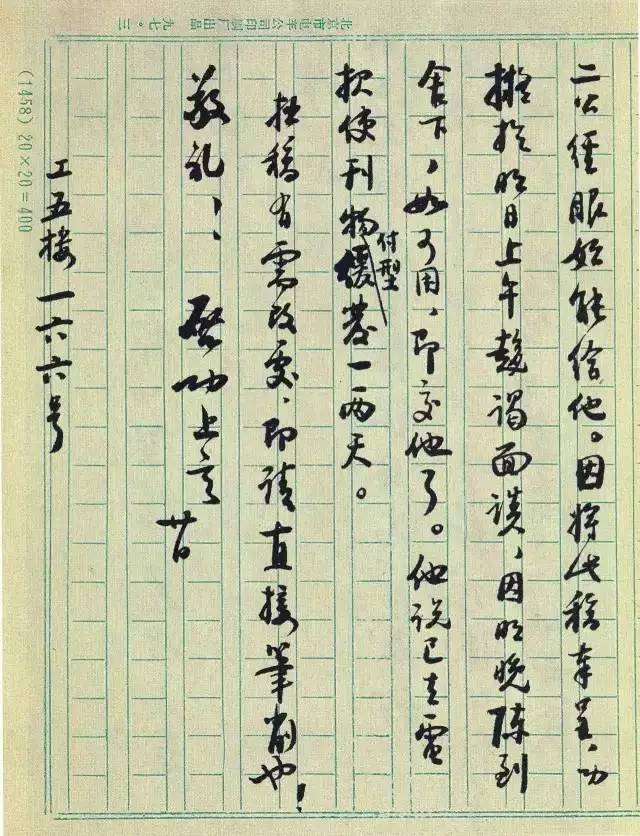 二公經眼始能给他。因将此稿奉呈、功
擬於明日上午趋謁面談，因明晚陈到
舍下，如可用，即交他了。他说已去電
报使刊物緩付型一两天。
拙稿有需改处，即请直接筆削也！
敬礼！ 启功上言
廿日
工五楼一六六号
北京市电车公司印刷厂出品 九七·三
(1458) 20×20=400